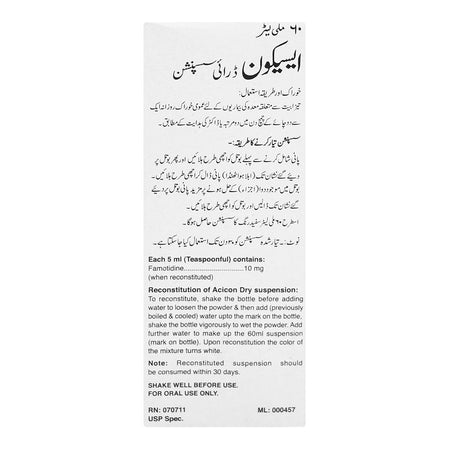 ۶۰ ملی لیٹر
ایسیکون ڈرائی سسپنشن
خوراک اور طریقہ استعمال:
تیزابیت سے متعلقہ معدہ کی بیماریوں کے لئے عمومی خوراک روزانہ ایک
سے دو چائے کے چمچ دن میں دو مرتبہ یا ڈاکٹر کی ہدایت کے مطابق۔
سسپنشن تیار کرنے کا طریقہ:-
پانی شامل کرنے سے پہلے بوتل کو اچھی طرح ہلائیں اور پھر بوتل پر
دیئے گئے نشان تک (ابلا ہوا ٹھنڈا) پانی ڈال کر اچھی طرح ہلائیں۔
بوتل میں موجود دوا (اجزاء) کے حل ہونے پر مزید پانی بوتل پر دیئے
گئے نشان تک ڈالیں اور بوتل کو اچھی طرح ہلائیں۔
اسطرح ۶۰ ملی لیٹر سفید رنگ کا سسپنشن حاصل ہوگا۔
نوٹ:- تیار شدہ سسپنشن کو ۳۰ دن تک استعمال کیا جا سکتا ہے۔
Each 5 ml (Teaspoonful) contains:
Famotidine..........................10 mg
(when reconstituted)
Reconstitution of Acicon Dry suspension:
To reconstitute, shake the bottle before adding
water to loosen the powder & then add (previously
boiled & cooled) water upto the mark on the bottle,
shake the bottle vigorously to wet the powder. Add
further water to make up the 60ml suspension
(mark on bottle). Upon reconstitution the color of
the mixture turns white.
Note: Reconstituted suspension should
be consumed within 30 days.
SHAKE WELL BEFORE USE.
FOR ORAL USE ONLY.
RN: 070711 ML: 000457
USP Spec.